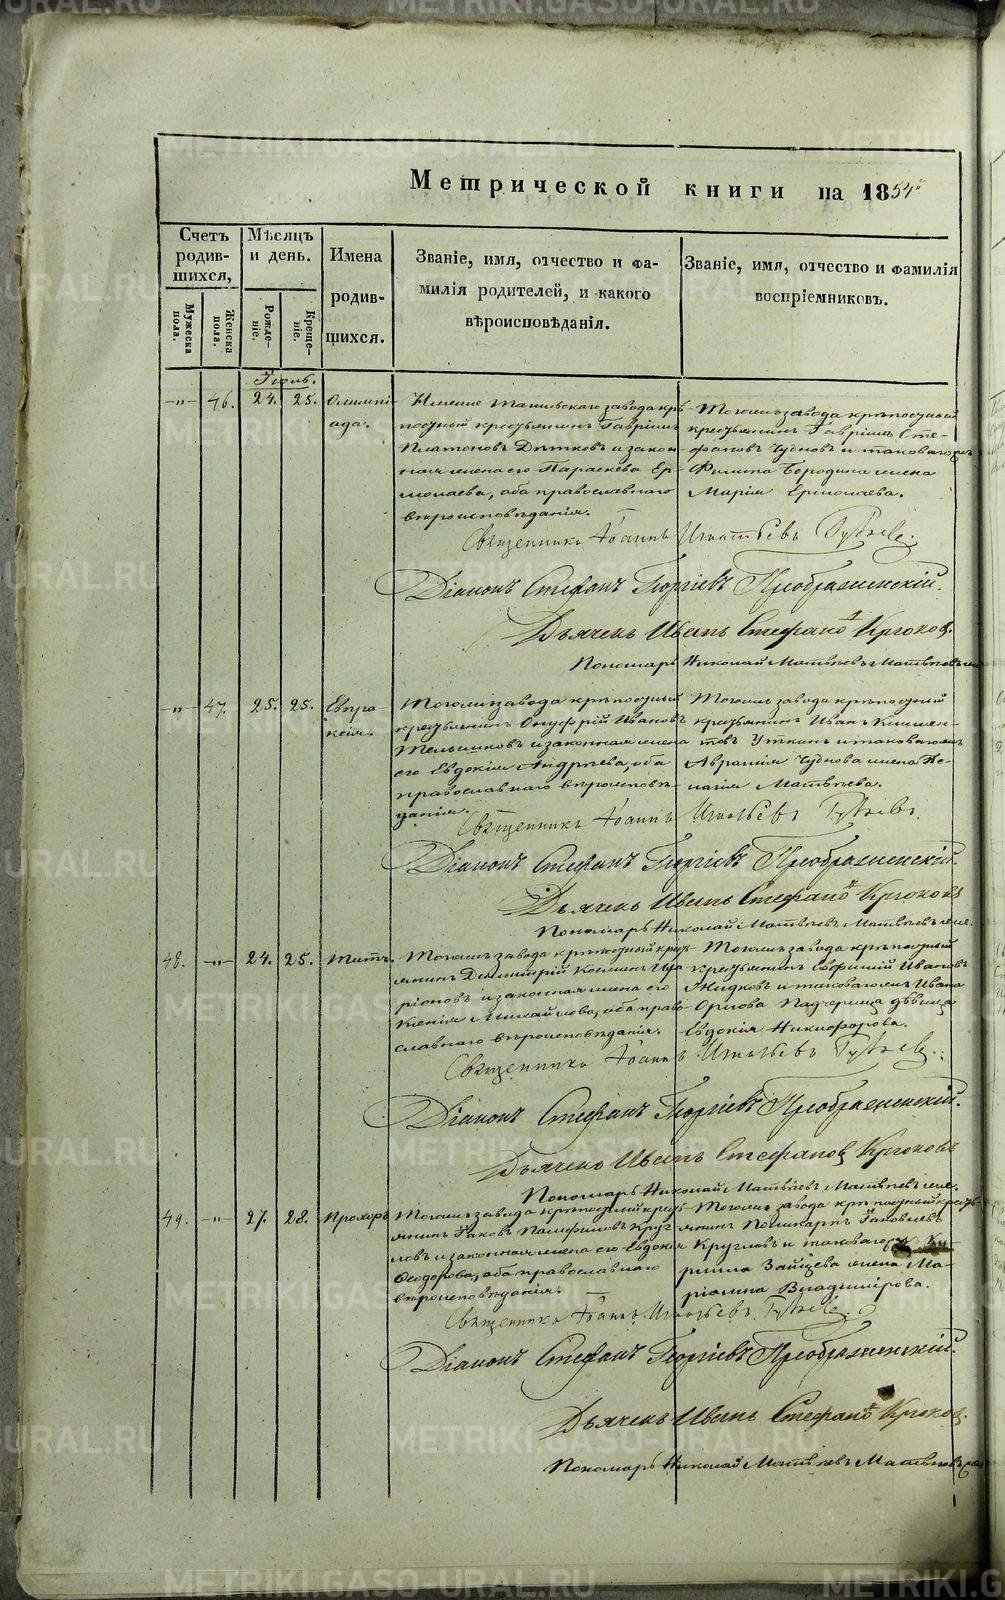 METRIKI.GASO-URAL.RU
Метрической книги на 1854й
Счетъ родив-шихся,
Мѣсяцъ и день.
Имена родив-шихся.
Званіе, имя, отчество и фа-
милія родителей, и какого
вѣроисповѣданія.
Званіе, имя, отчество и фамилія
воспріемниковъ.
Мужеска пола.
Женска пола.
Рожде-ніе.
Креще-ніе.
Іюль.
-"- 46. 24. 25. Олимпі-
ада.
Нижне Тагильскаго завода крѣ-
постный крестьянинъ Гавріилъ
Платоновъ Дѣтковъ и закон-
ная жена его Параскева Ер-
молаева, оба православнаго
вѣроисповѣданія.
Тогожъ завода крѣпостный
крестьянинъ Гавріилъ Сте-
фановъ Чудновъ и таковагожъ
Филипа Бородина жена
Марія Ермолаева.
Священникъ Іоаннъ Игнатьевъ
Діаконъ Стефанъ Георгіевъ Преображенскій.
Дьячекъ Иванъ Стефановъ Крюковъ.
Пономарь Николай Матвѣевъ Матвѣевъ
-"- 47. 25. 25. Евпра-
ксія.
Тогожъ завода крѣпостный
крестьянинъ Онуфрій Ивановъ
Мельниковъ и законная жена
его Евдокія Андреева, оба
православнаго вѣроисповѣ-
данія.
Тогожъ завода крѣпостный
крестьянинъ Иванъ Климен-
товъ Уткинъ и таковагожъ
Авраамія Чуднова жена Пе-
лагія Матвѣева.
Священникъ Іоаннъ Игнатьевъ
Діаконъ Стефанъ Георгіевъ Преображенскій.
Дьячекъ Иванъ Стефановъ Крюковъ
Пономарь Николай Матвѣевъ Матвѣевъ
48. -"- 24. 25. Титъ.
Тогожъ завода крѣпостный кресть-
янинъ Димитрій Косминъ Ила-
ріоновъ и законная жена его
Ксенія Михайлова, оба право-
славнаго вѣроисповѣданія.
Тогожъ завода крѣпостный
крестьянинъ Ивановъ
Жидковъ и таковагожъ Ивана
Орлова Падчерица дѣвица
Евдокія Никифорова.
Священникъ Іоаннъ Игнатьевъ
Діаконъ Стефанъ Георгіевъ Преображенскій.
Дьячекъ Иванъ Стефановъ Крюковъ
Пономарь Николай Матвѣевъ Матвѣевъ
49. -"- 27. 28. Прохоръ
Тогожъ завода крѣпостный кресть-
янинъ Іаковъ Памфиловъ Круг-
ловъ и законная жена его Евдокія
Ѳеодорова, оба православнаго
вѣроисповѣданія.
Тогожъ завода крѣпостный кресть-
янинъ Поликарпъ Іаковлевъ
Кругловъ и таковагожъ Ки-
рилла Зайцева жена Ма-
ріамна Владимірова.
Священникъ Іоаннъ Игнатьевъ
Діаконъ Стефанъ Георгіевъ Преображенскій.
Дьячекъ Иванъ Стефановъ Крюковъ.
Пономарь Николай Матвѣевъ Матвѣевъ